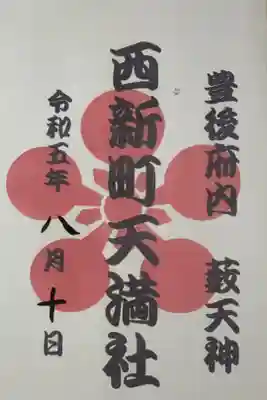 豊後府内 薮天神
西新町天満社
令和五年八月十日